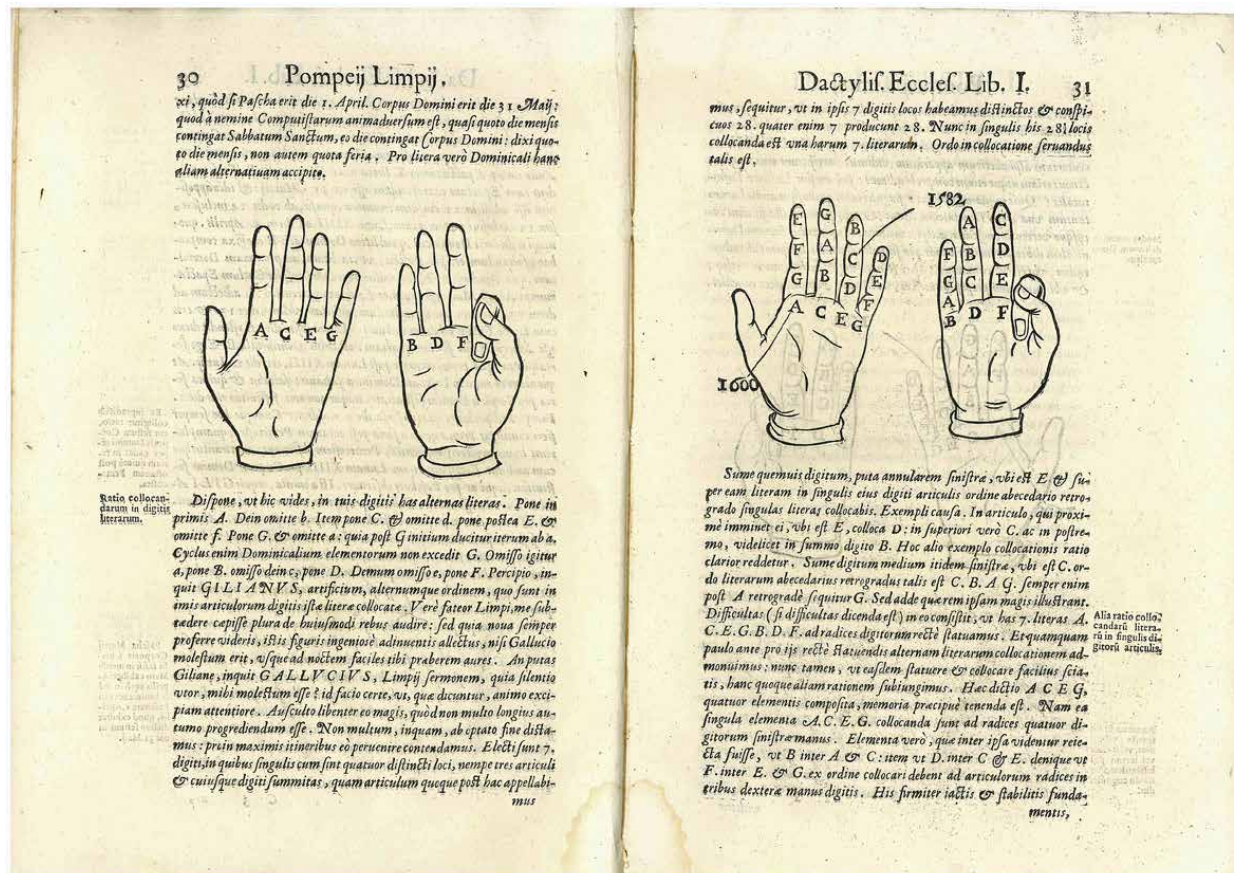 30 Pompeij Limpij.
xi, quòd si Pascha erit die 1. April. Corpus Domini erit die 31 Maij:
quod à nemine Computistarum animaduersum est, quasi quoto die mensis
contingat Sabbatum Sanctum, eo die contingat Corpus Domini: dixi quo-
to die mensis, non autem quota feria. Pro litera verò Dominicali hanc
aliam alternatiuam accipite.
A C E G
B D F
Ratio collocan-
darum in digitis
literarum.
Dispone, vt hic vides, in tuis digitis has alternas literas. Pone in
primis A. Dein omitte b. Item pone C. & omitte d. pone postea E. &
omitte f. Pone G. & omitte a: quia post G initium ducitur iterum ab a.
Cyclus enim Dominicalium elementorum non excedit G. Omisso igitur
a, pone B. omisso dein c, pone D. Demum omisso e, pone F. Percipio, in-
quit GILIANVS, artificium, alternumque ordinem, quo sunt in
imis articulorum digitis istæ literæ collocatæ. Verè fateor Limpi, me sub-
tædere cæpisse plura de huiusmodi rebus audire: sed quia noua semper
proferre videris, istis figuris ingeniosè adinuentis allectus, nisi Gallucio
molestum erit, vsque ad noctem faciles tibi præberem aures. An putas
Giliane, inquit GALLVCIVS, Limpij sermonem, quia silentio
vtor, mihi molestum esse? id facio certe, vt, quæ dicuntur, animo exci-
piam attentiore. Ausculto libenter eo magis, quòd non multo longius au-
tumo progrediendum esse. Non multum, inquam, ab optato fine dista-
mus: proin maximis itineribus eò peruenire contendamus. Electi sunt 7.
digiti, in quibus singulis cum sint quatuor distincti loci, nempe tres articuli
& cuiusque digiti summitas, quam articulum quoque post hac appellabi-
mus
Dactylis. Eccles. Lib. I. 31
mus, sequitur, vt in ipsis 7 digitis locos habeamus distinctos & conspi-
cuos 28. quater enim 7 producunt 28. Nunc in singulis his 28 locis
collocanda est vna harum 7. literarum. Ordo in collocatione seruandus
talis est.
1582
E G B D
F A C E
G B D F
A C E G
F A C
G B D
A C E
B D F
1600
Sume quemuis digitum, puta annularem sinistræ, vbi est E & su-
per eam literam in singulis eius digiti articulis ordine abecedario retro-
grado singulas literas collocabis. Exempli causa. In articulo, qui proxi-
mè imminet ei, vbi est E, colloca D: in superiori verò C. ac in postre-
mo, videlicet in summo digito B. Hoc alio exemplo collocationis ratio
clarior reddetur. Sume digitum medium itidem sinistræ, vbi est C. or-
do literarum abecedarius retrogradus talis est C. B. A G. semper enim
post A retrogradè sequitur G. Sed adde quæ rem ipsam magis illustrant.
Difficultas (si difficultas dicenda est) in eo consistit, vt has 7. literas A.
C. E. G. B. D. F. ad radices digitorum rectè statuamus. Et quamquam
paulo ante pro ijs rectè statuendis alternam literarum collocationem ad-
monuimus: nunc tamen, vt easdem statuere & collocare facilius scia-
tis, hanc quoque aliam rationem subiungimus. Hæc dictio A C E G,
quatuor elementis composita, memoria præcipuè tenenda est. Nam ea
singula elementa A. C. E. G. collocanda sunt ad radices quatuor di-
gitorum sinistræ manus. Elementa verò, quæ inter ipsa videntur reie-
cta fuisse, vt B inter A & C: item vt D. inter C & E. denique vt
F. inter E. & G. ex ordine collocari debent ad articulorum radices in
tribus dexteræ manus digitis. His firmiter iactis & stabilitis funda-
mentis,
Alia ratio collo-
candarū litera-
rū in singulis di-
gitorū articulis.